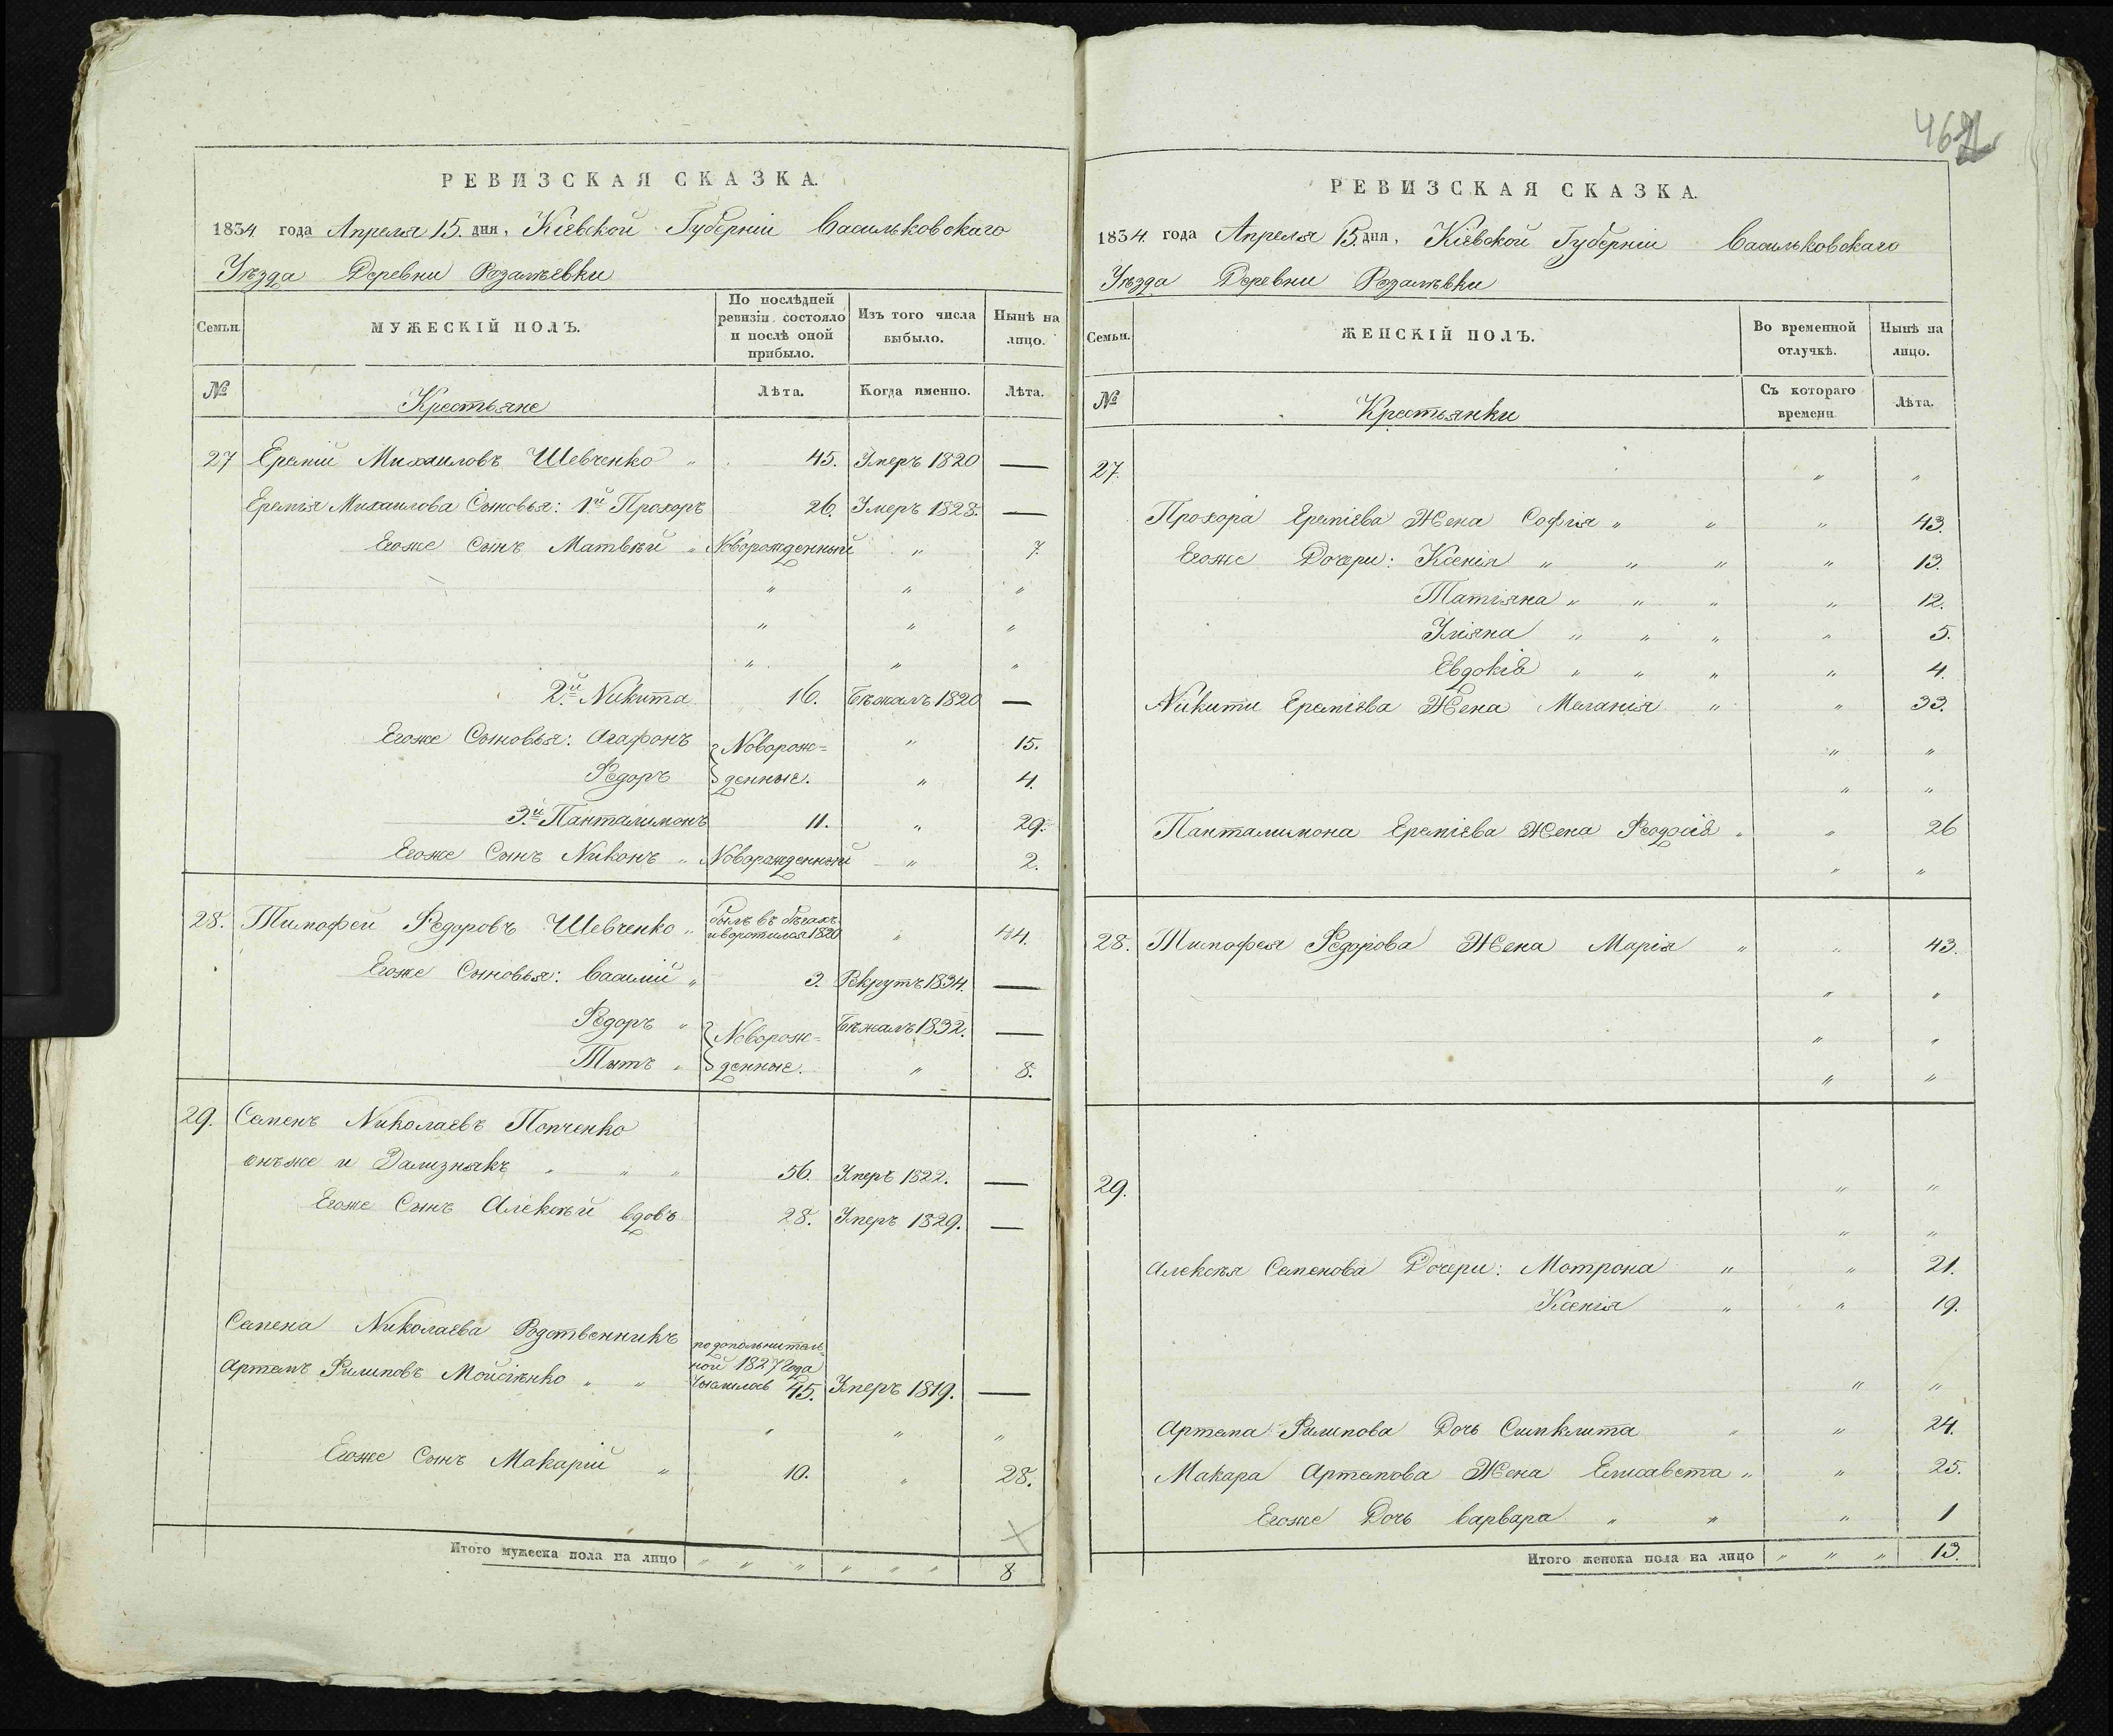 РЕВИЗСКАЯ СКАЗКА.
1834 года Апреля 15. дня, Кіевской Губерніи Васильковскаго
Уѣзда Деревни Розалѣевки
Семьи.
МУЖЕСКІЙ ПОЛЪ.
По послѣдней ревизіи состояло и послѣ оной прибыло.
Изъ того числа выбыло.
Нынѣ на лицо.
№ Крестьяне Лѣта. Когда именно. Лѣта.
27 Еремій Михаиловъ Шевченко „ 45. Умеръ 1820 —
Еремія Михаилова Сыновья: 1й Прохоръ 26. Умеръ 1828. —
Егоже Сынъ Матвѣй „ Новорожденный „ 7.
„ „ „
„ „ „
„ „ „
2.й Никита 16. Бѣжалъ 1820 —
Егоже Сыновья: Агафонъ } Новорож= „ 15.
Федоръ } денные. „ 4.
3.й Панталимонъ 11. „ 29.
Егоже Сынъ Никонъ „ Новорожденный „ 2.
28. Тимофей Федоровъ Шевченко „ былъ въ бѣгахъ и воротился 1820 „ 44.
Егоже Сыновья: Василій „ 3. Рекрутъ 1834. —
Федоръ „ } Новорож= Бѣжалъ 1832. —
Тытъ „ } денные. „ 8.
29. Семенъ Николаевъ Попченко
онъже и Зализнякъ „ „ „ 56. Умеръ 1822. —
Егоже Сынъ Алексѣй вдовъ 28. Умеръ 1829. —
Семена Николаева Родственникъ по дополнитель=
ной 1827 года
Артемъ Филиповъ Мойсіѣнко „ „ 45. Умеръ 1819. —
„ „ „
Егоже Сынъ Макарій „ 10. „ 28.
Итого мужеска пола на лицо „ „ „ „ „ „ 8
РЕВИЗСКАЯ СКАЗКА.
1834. года Апреля 15. дня, Кіевской Губерніи Васильковскаго
Уѣзда Деревни Розалѣвки
Семьи.
ЖЕНСКІЙ ПОЛЪ.
Во временной отлучкѣ.
Нынѣ на лицо.
№ Крестьянки Съ котораго времени Лѣта.
27. „ „
Прохора Ереміева Жена Софія „ „ „ 43.
Егоже Дочери: Ксенія „ „ „ „ 13.
Татіяна „ „ „ „ 12.
Уліяна „ „ „ „ 5.
Евдокія „ „ „ „ 4.
Никити Ереміева Жена Меланія „ „ 33.
„ „
„ „
Панталимона Ереміева Жена Феодосія „ „ 26
„ „
28. Тимофея Федорова Жена Марія „ „ 43.
„ „
„ „
„ „
29. „ „
„ „
Алексѣя Семенова Дочери: Мотрона „ „ 21.
Ксенія „ „ 19.
„ „
Артема Филипова Дочь Синклита „ „ 24.
Макара Артемова Жена Елисавета „ „ 25.
Егоже Дочь Варвара „ „ „ 1
Итого женска пола на лицо „ „ „ 13.